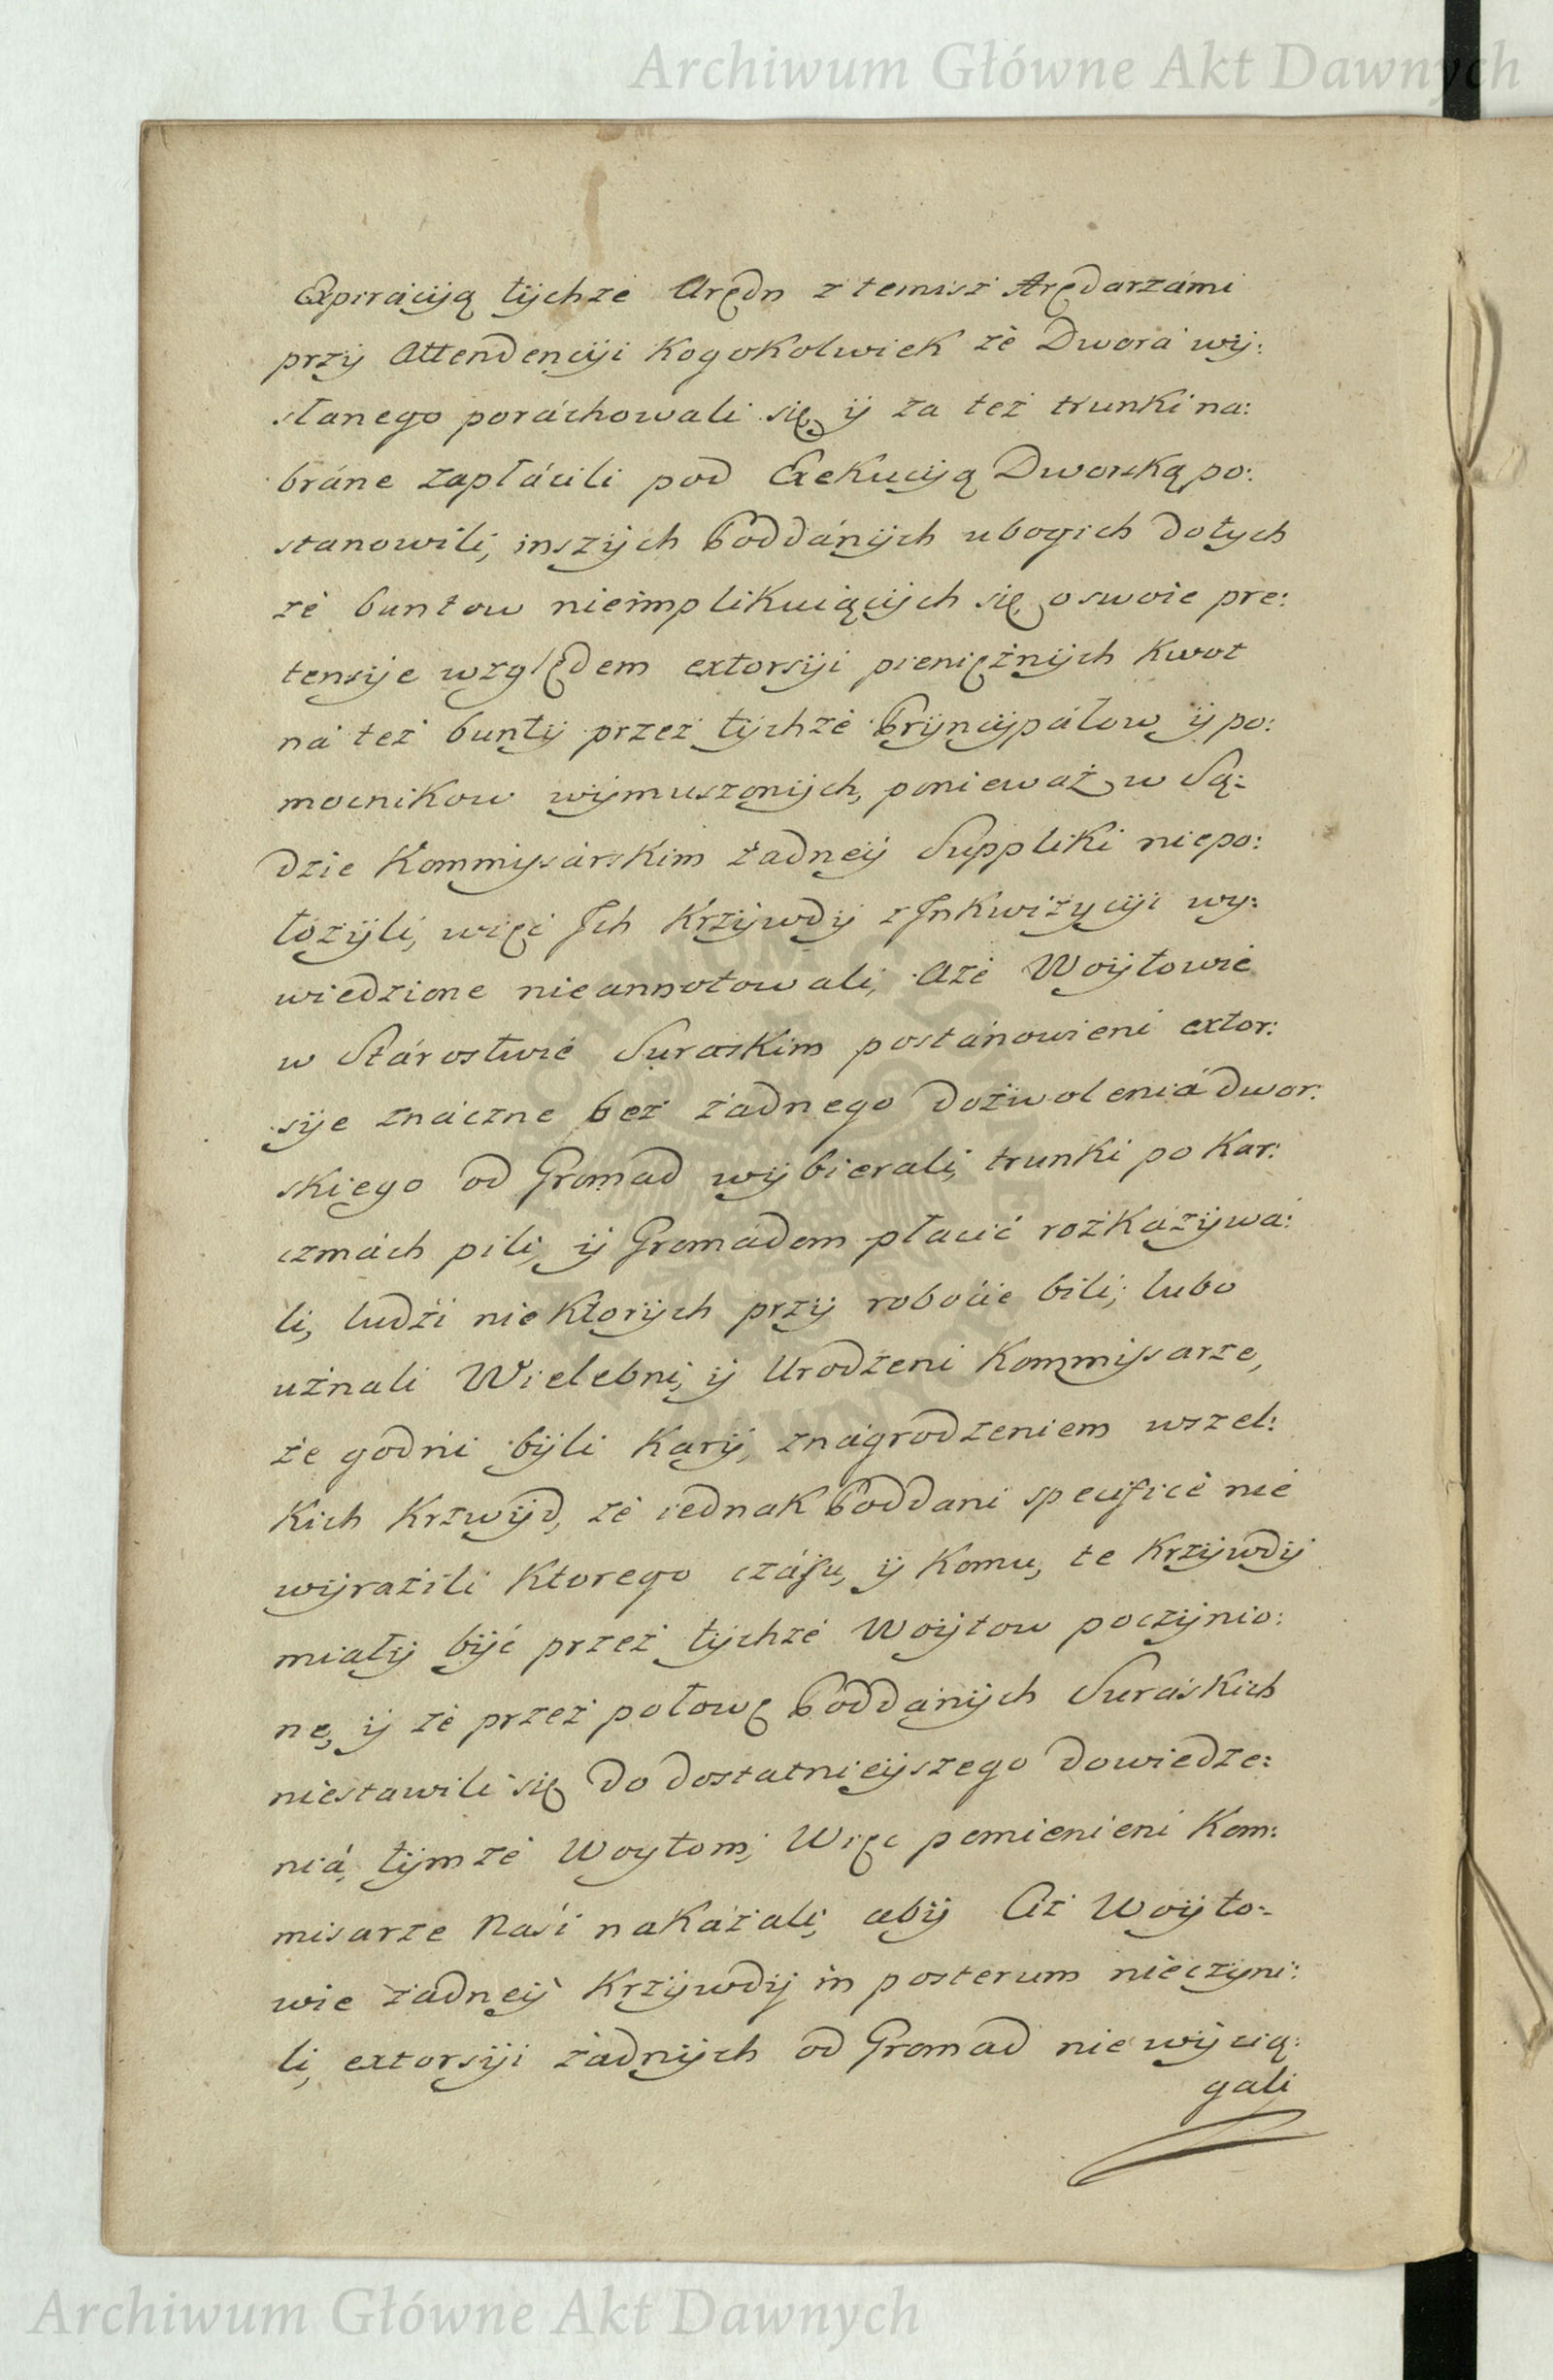 Archiwum Główne Akt Dawnych
Expiraciją tychże Arędn z temisz Arędarzámi
przÿ Attendencÿi Kogokolwiek zè Dwora wÿ:
słanego poráchowali się, ÿ za też trunki na:
bráne zapłácili pod Exekucÿą Dworską po:
stanowili, inszÿch Poddánÿch ubogich do tych
żè buntow nieimplikuiącÿch się o swoie pre:
tensÿe względem extorsÿi pieniężnÿch Kwot
ná też buntÿ przez tÿchże Prÿncÿpáłow ÿ po:
mocnikow wÿmuszonÿch, ponieważ w Są:
dzie Kommÿsárskim żadneÿ Suppliki niepo:
łożÿli, więc Ich Krzÿwdÿ z Inkwizycÿi wy:
wiedzione nieannotowali, Aże Woÿtowie
w Stárostwie Suraskim postánowieni extor:
sÿe znáczne bez żadnego dozwoleniá dwor:
skiego od Gromad wÿbierali, trunki po Kar:
czmách pili, ÿ Gromádom płacić rozkázÿwá:
li, ludzi niektorÿch przÿ roboćie bili, lubo
uznali Wielebni, ÿ Urodzeni Kommissarze,
że godni bÿli Karÿ, znágrodzeniem wszel:
kich Krzwÿd, żè iednak Poddani specificè nie
wÿrazili Ktorego czásu, ÿ Komu, te Krzÿwdÿ
miałÿ bÿć przez tÿchże Woÿtow poczÿnio:
ne, ÿ żè przez połowę Poddánÿch Suráskich
niestawili się do dostatnieÿszego dowiedze:
niá, tÿmże Woytom; Więc pomienieni Kom:
misarze Naśi nakázali, abÿ Ciż Woÿto:
wie żadneÿ Krzÿwdÿ in posterum nieczÿni:
li, extorsÿi żadnÿch od Gromad nie wÿcią:
gali
Archiwum Główne Akt Dawnych